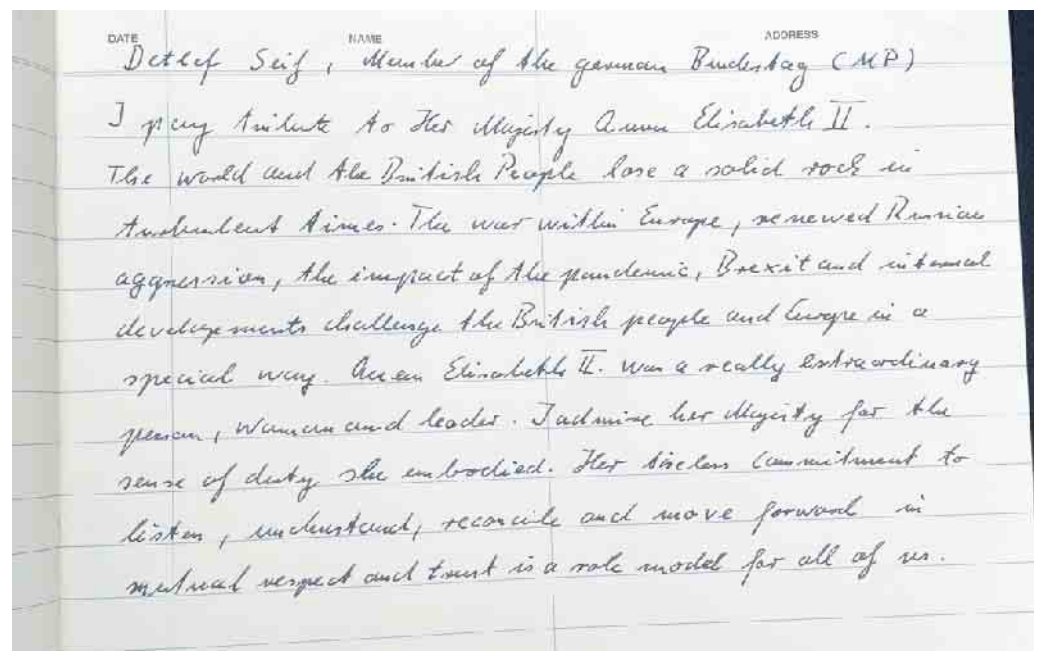 DATE NAME ADDRESS
Detlef Seif, Member of the german Bundestag (MP)
I pay tribute to Her Majesty Queen Elisabeth II.
The world and the British People lose a solid rock in
turbulent times. The war within Europe, renewed Russian
aggression, the impact of the pandemic, Brexit and internal
developments challenge the British people and Europe in a
special way. Queen Elisabeth II. was a really extraordinary
person, woman and leader. I admire her Majesty for the
sense of duty she embodied. Her tireless commitment to
listen, understand, reconcile and move forward in
mutual respect and trust is a role model for all of us.